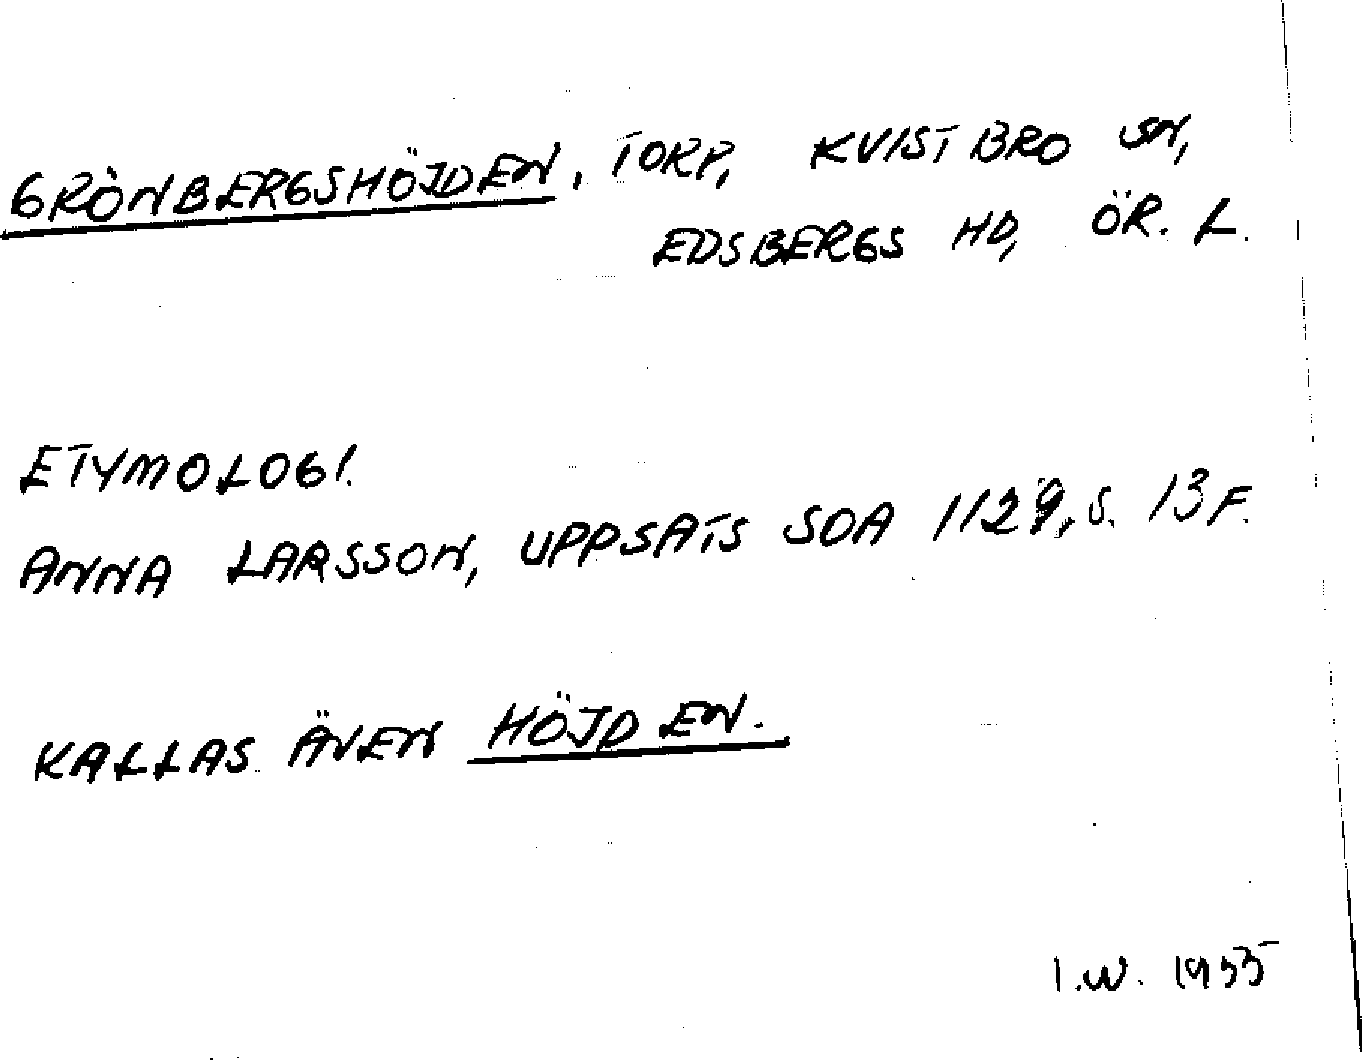 GRÖNBERGSHÖJDEN, TORP, KVISTBRO SN,
EDSBERGS HD, ÖR. L.
ETYMOLOGI.
ANNA LARSSON, UPPSATS SOA 1129, S. 13 F.
KALLAS ÄVEN HÖJDEN.
I.W. 1955